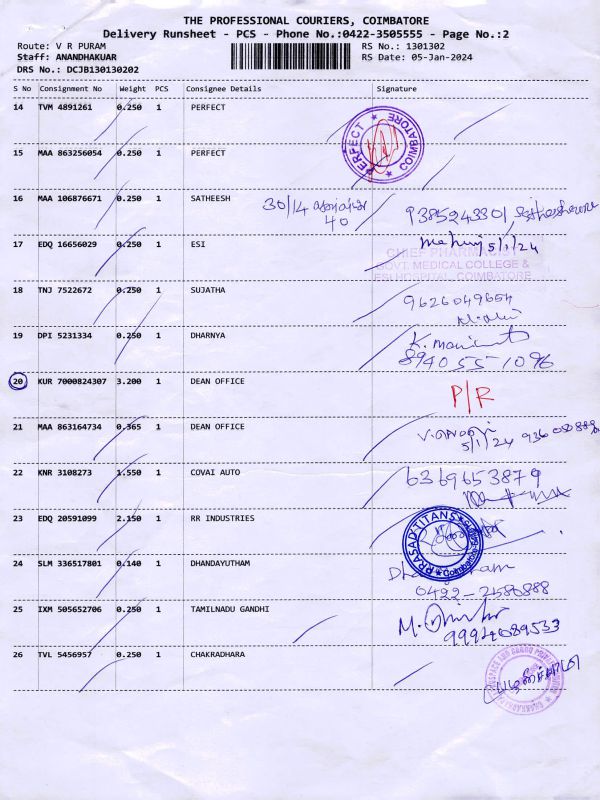 THE PROFESSIONAL COURIERS, COIMBATORE
Delivery Runsheet - PCS - Phone No.:0422-3505555 - Page No.:2
Route: V R PURAM
RS No.: 1301302
Staff: ANANDHAKUAR
RS Date: 05-Jan-2024
DRS No.: DCJB130130202
S No Consignment No Weight PCS Consignee Details Signature
14 TVM 4891261 0.250 1 PERFECT
PERFECT COIMBATORE
15 MAA 863256054 0.250 1 PERFECT
16 MAA 106876671 0.250 1 SATHEESH 30/14
40
9385243301
17 EDQ 16656029 0.250 1 ESI
5/1/24
CHIEF PHARMACIST
GOVT. MEDICAL COLLEGE &
ESI HOSPITAL, COIMBATORE
18 TNJ 7522672 0.250 1 SUJATHA
9626049654
19 DPI 5231334 0.250 1 DHARNYA
8940551096
20 KUR 7000824307 3.200 1 DEAN OFFICE P/R
21 MAA 863164734 0.365 1 DEAN OFFICE
5/1/24
22 KNR 3108273 1.550 1 COVAI AUTO 6369653879
23 EDQ 20591099 2.150 1 RR INDUSTRIES
PRASAD TITANS
24 SLM 336517801 0.140 1 DHANDAYUTHAM
0422-2580888
25 IXM 505652706 0.250 1 TAMILNADU GANDHI
99942089533
26 TVL 5456957 0.250 1 CHAKRADHARA